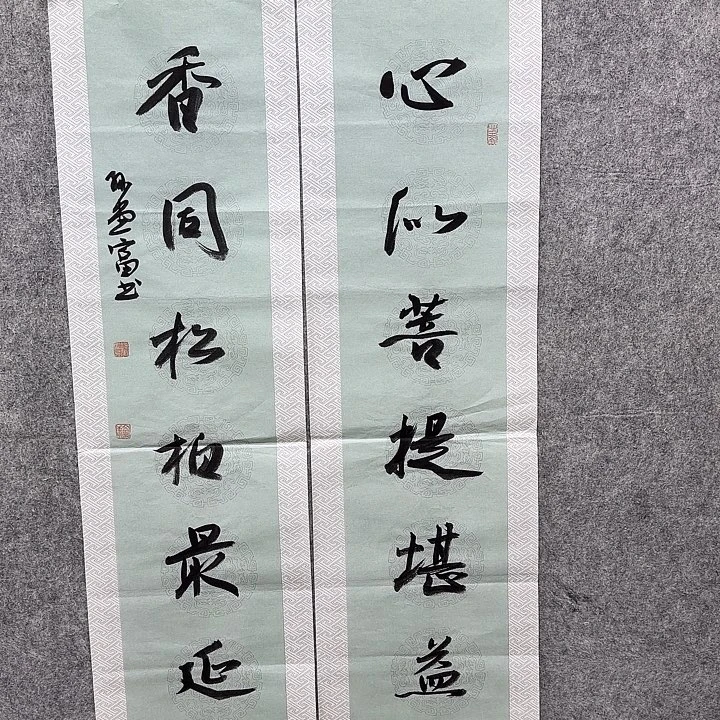 心似菩提堪益
香同松柏最延
孙孟富书